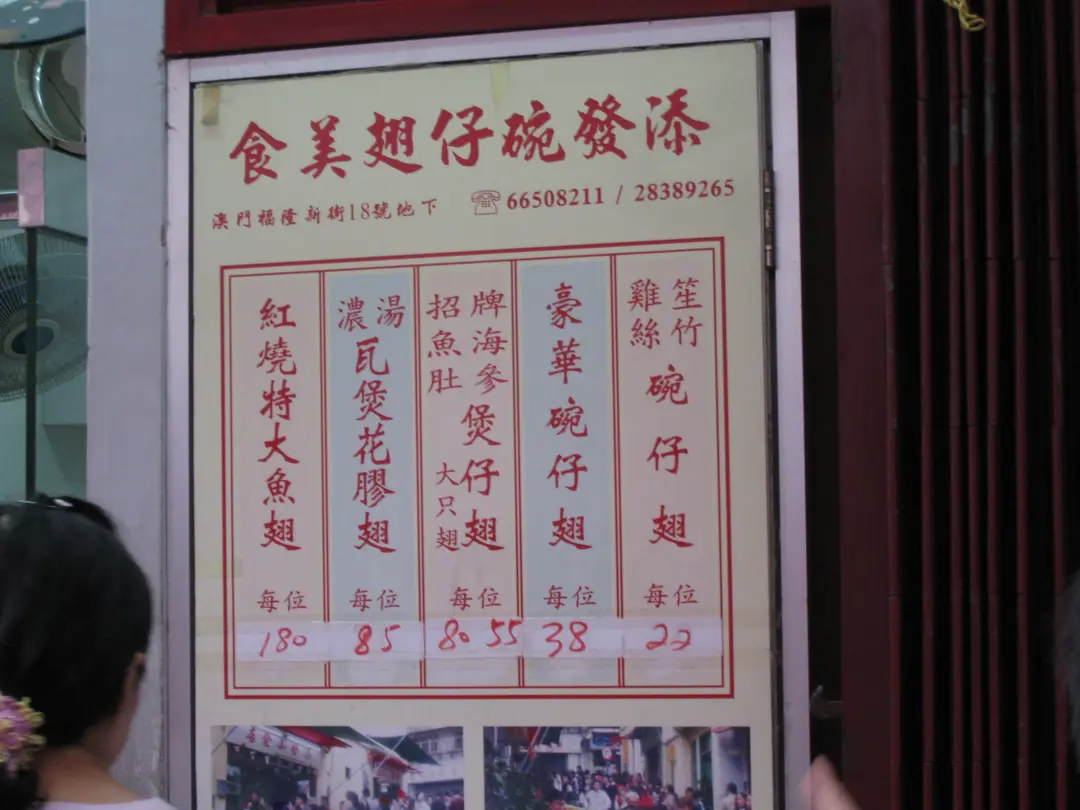 添發碗仔翅美食
澳門福隆新街18號地下 66508211 / 28389265
笙竹
雞絲
碗仔翅
每位
22
豪華碗仔翅
每位
38
招牌
海參
魚肚
煲仔翅
大只翅
每位
80 55
濃湯
瓦煲花膠翅
每位
85
紅燒特大魚翅
每位
180